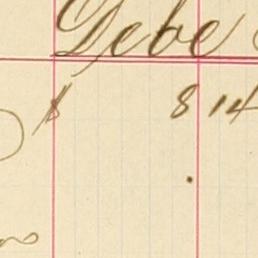 Debe
$ 8 14